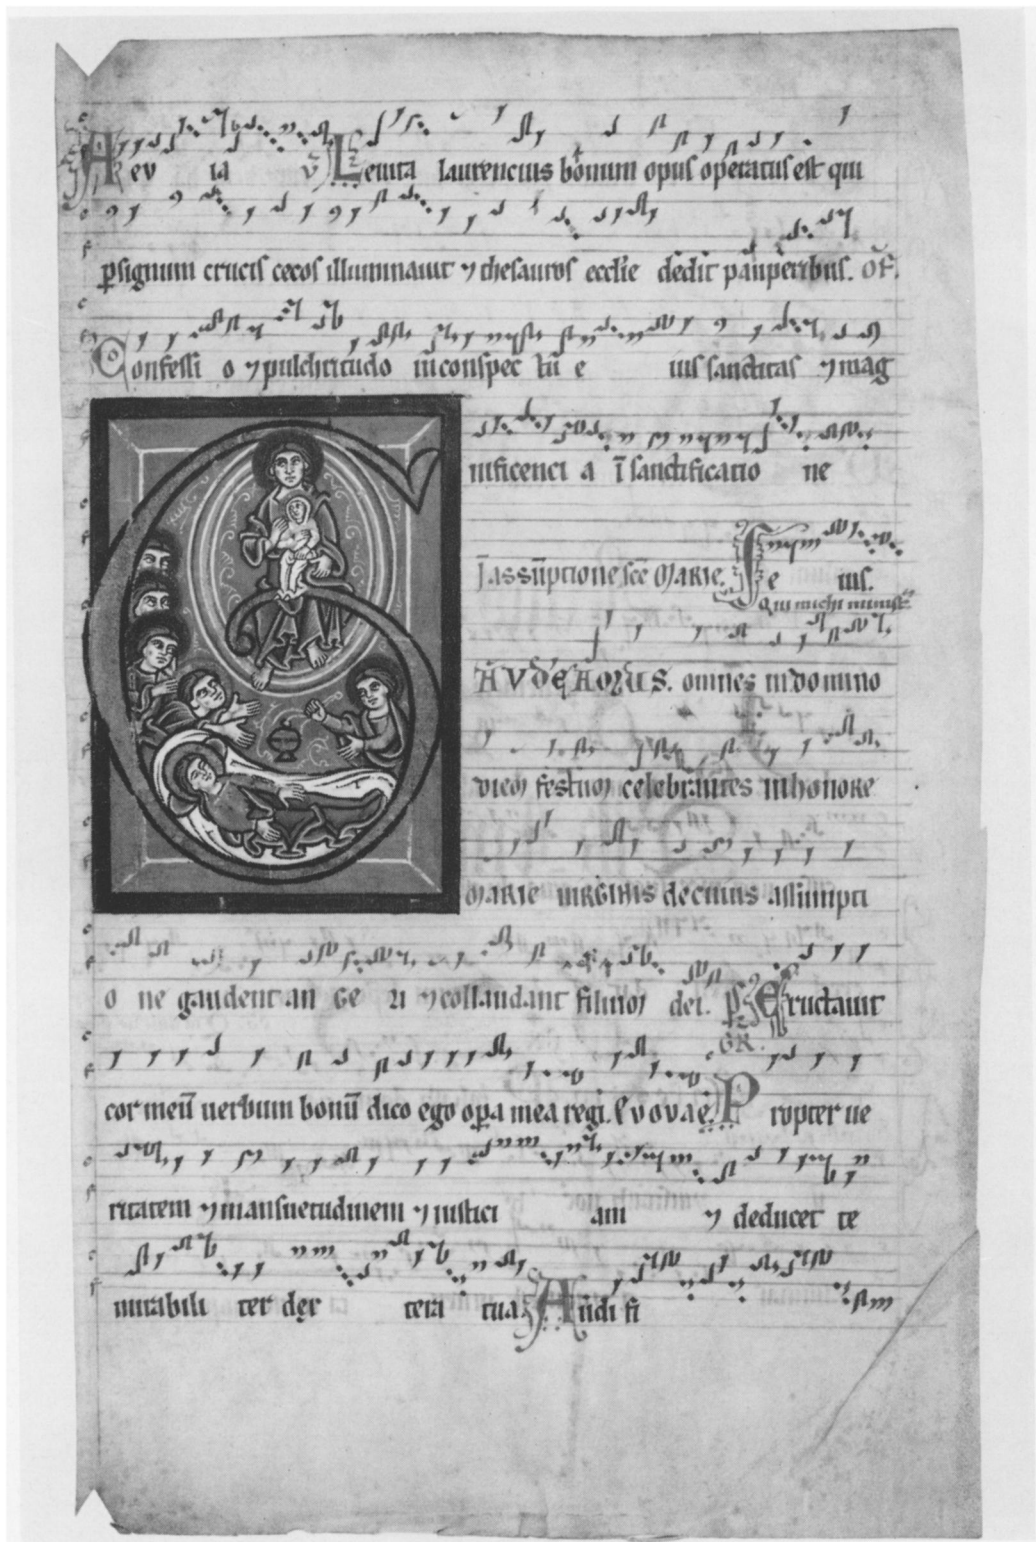 Aev ia v Levita laurencius bonum opus operatus est qui
psignum crucis cecos illuminavit ⁊ thesauros ecclie dedit pauperibus. of.
Confessi o ⁊ pulchritudo inconspec tu e ius sanctitas ⁊ mag
nificenci a i sanctificatio ne
In assuptione sce Marie. Se ius.
Qui michi minist
AVDEAMUS. omnes indomino
diem festum celebrantes inhonore
MARIE virginis decuius assumpti
o ne gaudent an ge li ⁊ collaudant filium dei. ps Eructavit
GR.
cor meu verbum bonu dico ego opa mea regi. Evovae Propter ve
ritatem ⁊ mansuetudinem ⁊ iustici am ⁊ deducet te
mirabili ter dex tera tua Audi fi